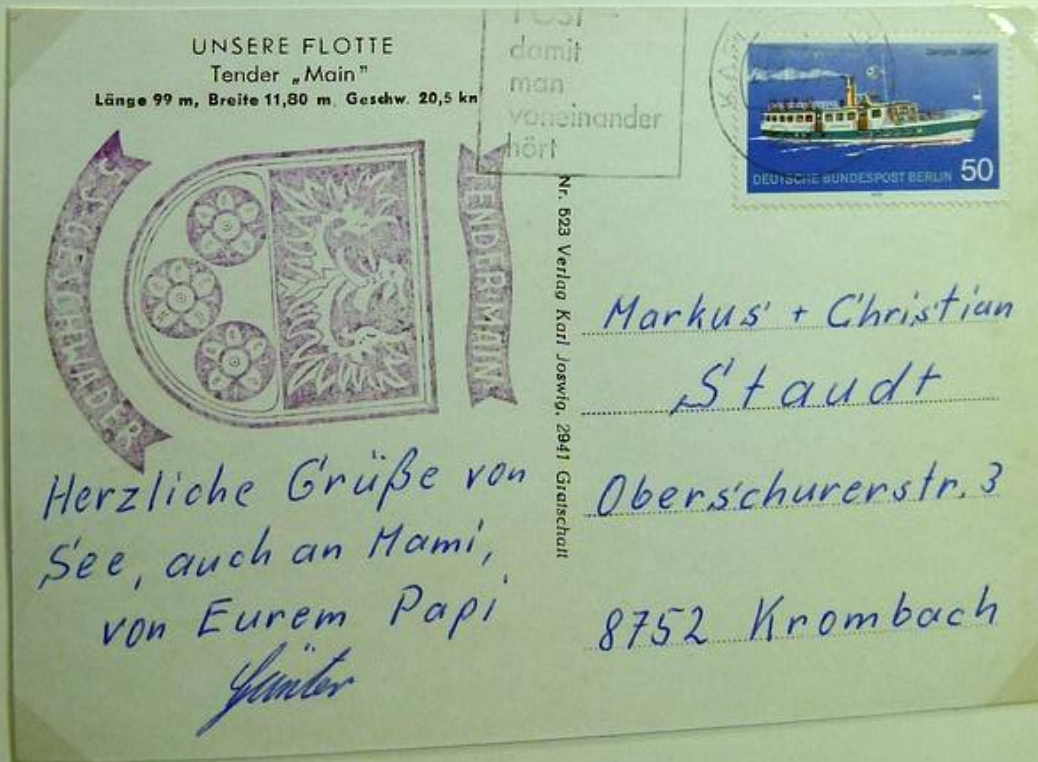 UNSERE FLOTTE
Tender „Main"
Länge 99 m, Breite 11,80 m Geschw. 20,5 kn
POST -
damit
man
voneinander
hört
DEUTSCHE BUNDESPOST BERLIN 50
GESCHWADER
TENDER MAIN
Nr. 523 Verlag Karl Joswig, 2941 Grafschaft
Herzliche Grüße von
See, auch an Mami,
von Eurem Papi
Günter
Markus + Christian
Staudt
Oberschurerstr. 3
8752 Krombach